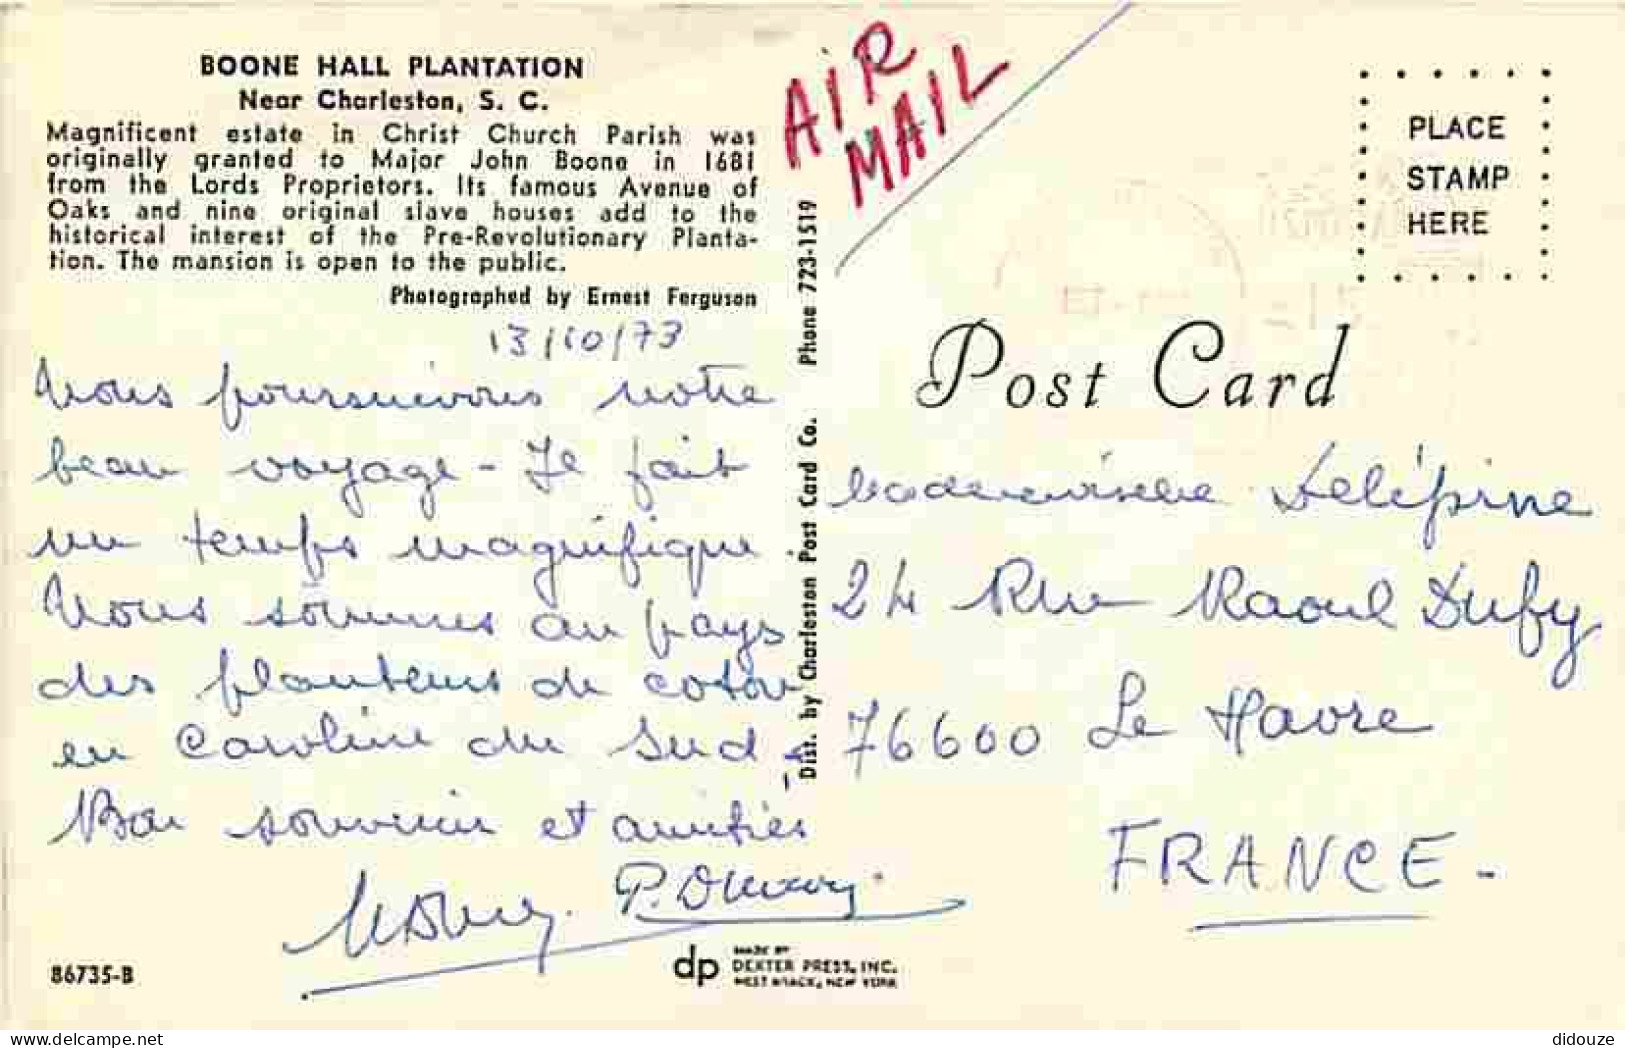 BOONE HALL PLANTATION
Near Charleston, S. C.
Magnificent estate in Christ Church Parish was
originally granted to Major John Boone in 1681
from the Lords Proprietors. Its famous Avenue of
Oaks and nine original slave houses add to the
historical interest of the Pre-Revolutionary Planta-
tion. The mansion is open to the public.
Photographed by Ernest Ferguson
13/10/73
Nous poursuivons notre
beau voyage - Je fait
un temps magnifique
Nous sommes au pays
des planteurs de coton
en Caroline du Sud
Bon souvenir et amitiés
P.
86735-B
dp
MADE BY
DEXTER PRESS, INC.
WEST NYACK, NEW YORK
Dist. by Charleston Post Card Co. Phone 723-1519
AIR
MAIL
PLACE
STAMP
HERE
Post Card
Mademoiselle Delépine
24 Rue Raoul Dufy
76600 Le Havre
FRANCE -
delcampe.net
didouze